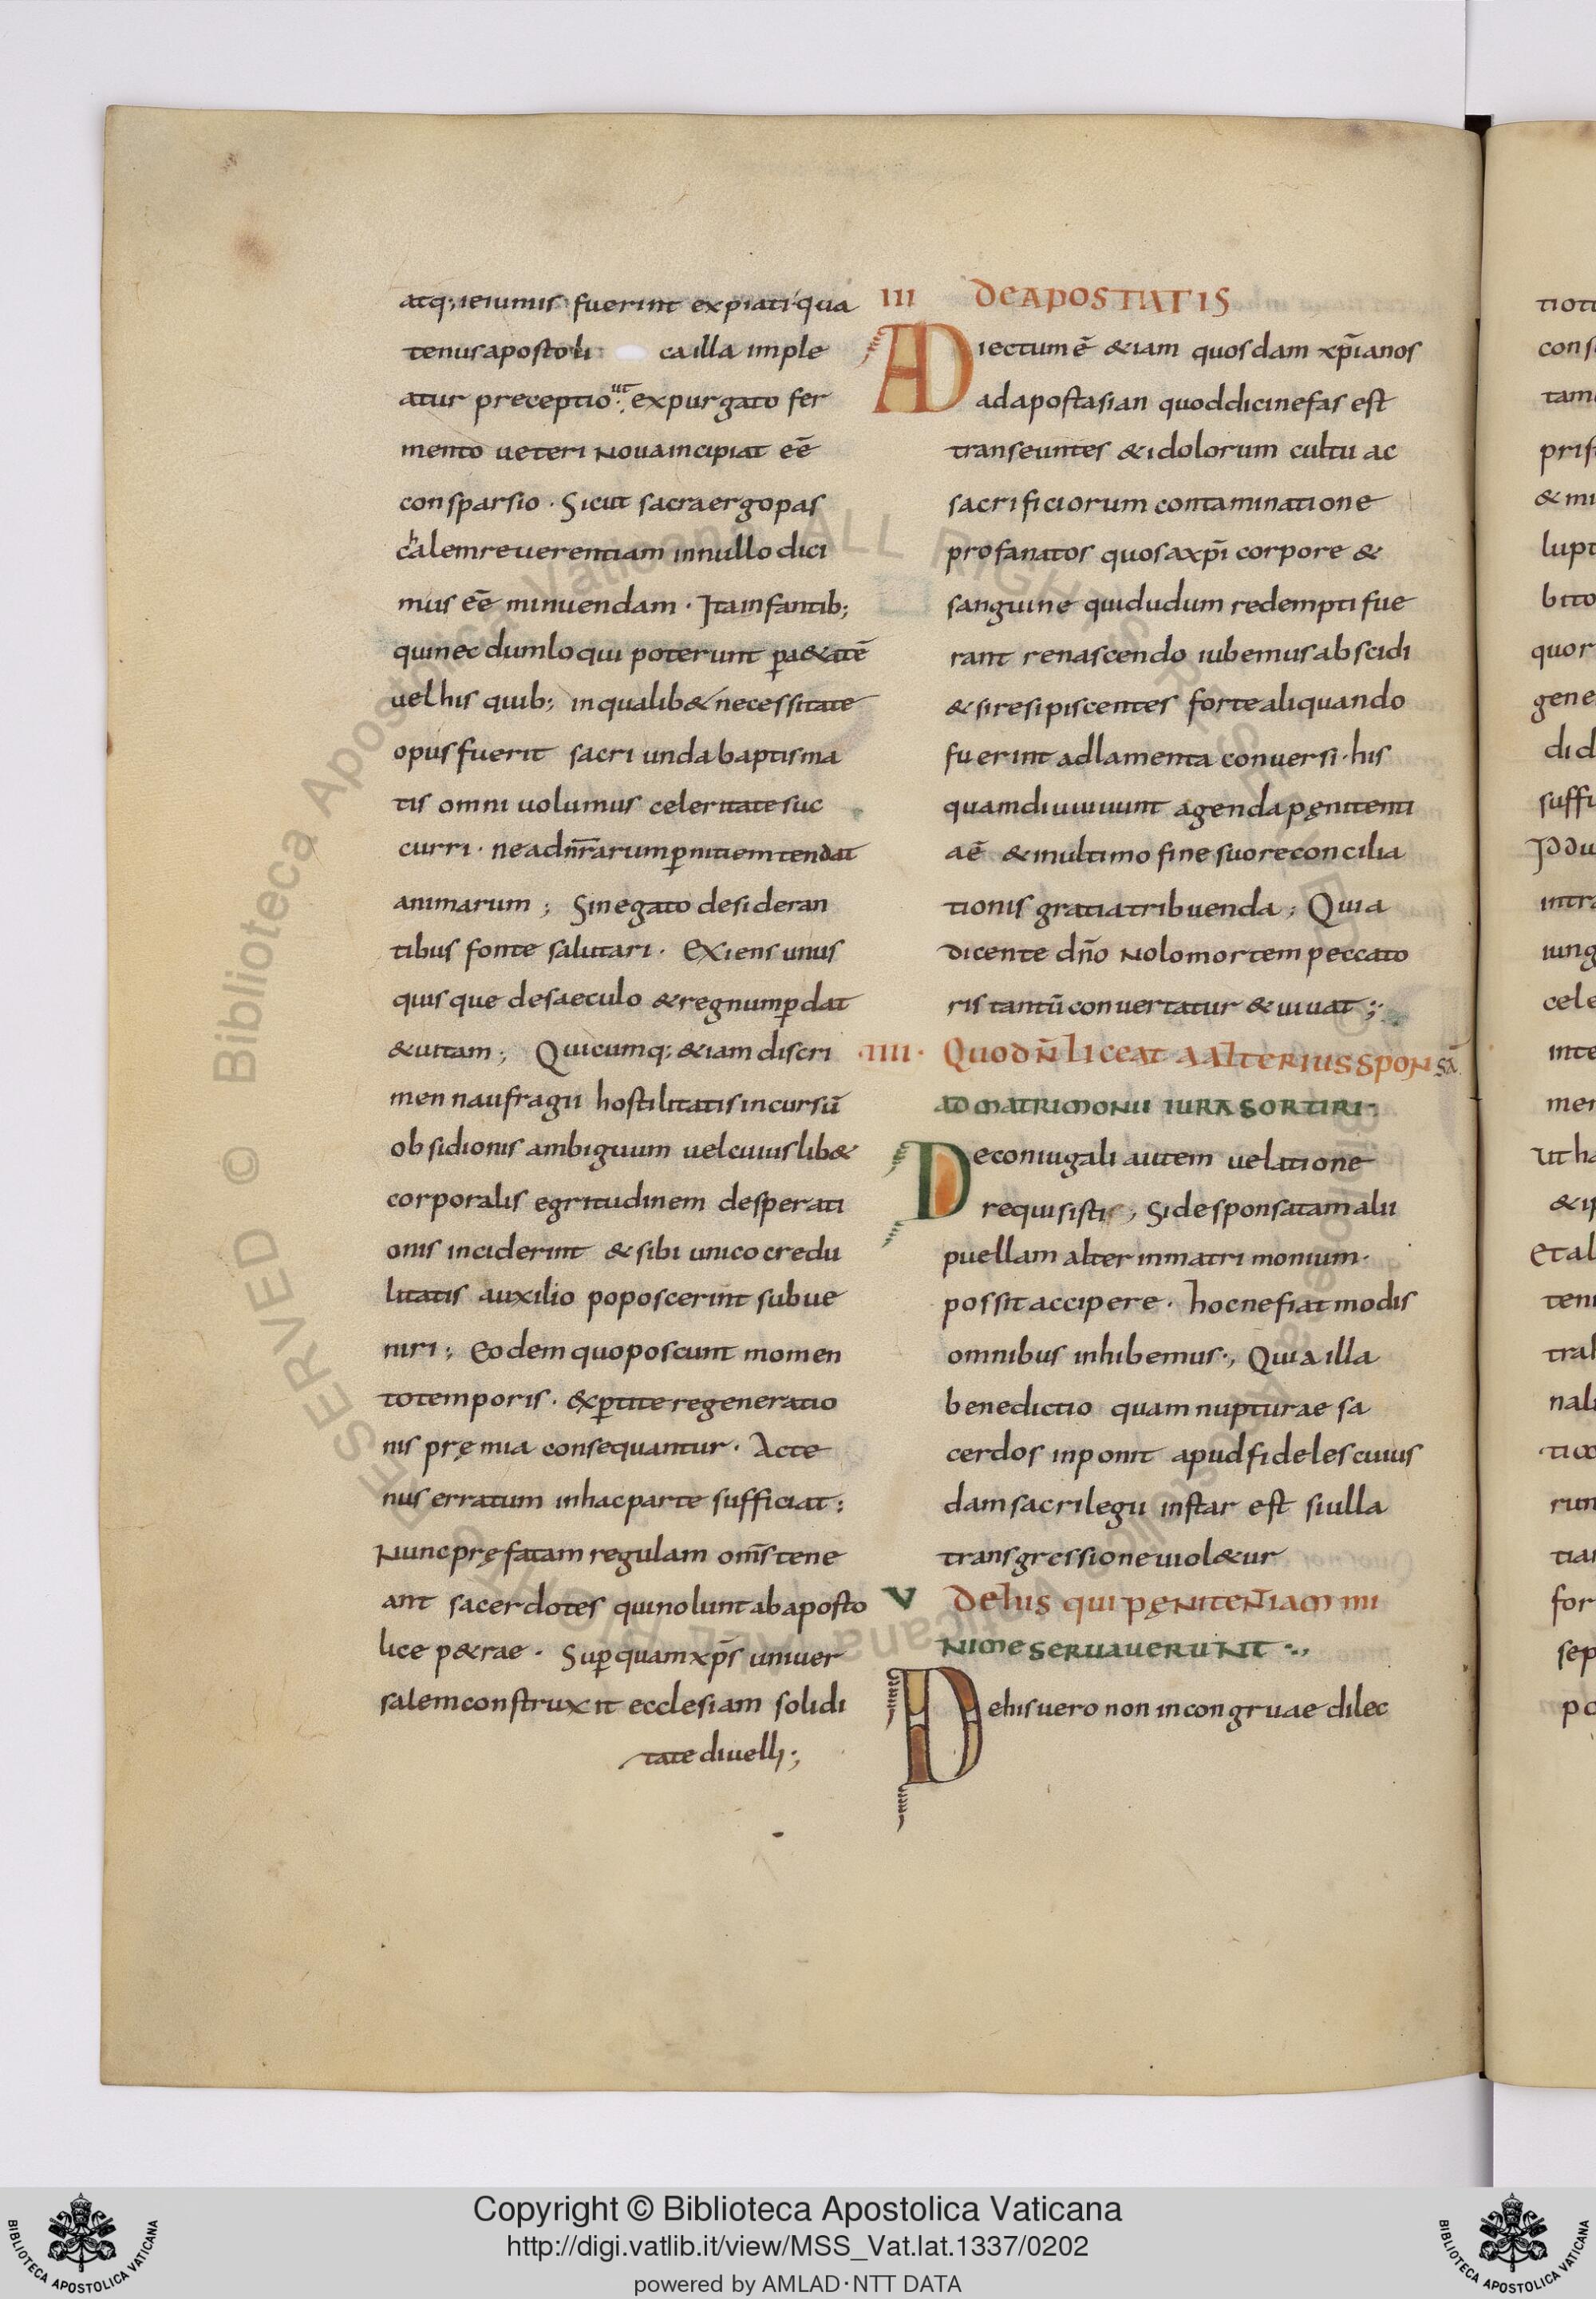 atq; ieiuniis fuerint expiati qua
tenus apostoli ca illa imple
atur preceptio ut expurgato fer
mento ueteri noua incipiat eē
consparsio · Sicut sacra ergo pas
chalem reuerentiam in nullo dici
mus eē minuendam · Ita infantib;
qui nec dum loqui poterunt p̱ a&atē
uel his quib; in qualib& necessitate
opus fuerit sacri unda baptisma
tis omni uolumus celeritate suc
curri · ne ad nr̄arum p̱nitiem tendat
animarum ; Si negato desideran
tibus fonte salutari · Exiens unus
quisque de saeculo & regnum p̱dat
& uitam ; Quicumq; &iam discri
men naufragii hostilitatis incursū
obsidionis ambiguum uel cuiuslib&
corporalis egritudinem desperati
onis inciderint & sibi unico credu
litatis auxilio poposcerint subue
niri ; Eodem quo poscunt momen
to temporis · exp̱tite regeneratio
nis pręmia consequantur · Acte
nus erratum in hac parte sufficiat :
Nunc pręfatam regulam om̄s tene
ant sacerdotes qui nolunt ab aposto
lice p&rae · Sup̱ quam xp̄s uniuer
salem construxit ecclesiam solidi
tate diuelli ;
III DE APOSTATIS
ADiectum ē &iam quosdam xp̄ianos
ad apostasian quod dici nefas est
transeuntes & idolorum cultu ac
sacrificiorum contaminatione
profanatos quos a xp̄i corpore &
sanguine qui dudum redempti fue
rant renascendo iubemus abscidi
& si resipiscentes forte aliquando
fuerint ad lamenta conuersi · his
quamdiu uiuunt agenda pęnitenti
a ē & in ultimo fine suo reconcilia
tionis gratia tribuenda ; Quia
dicente dn̄o Nolo mortem peccato
ris tantū conuertatur & uiuat ;
·IIII· Quod ñ liceat a alterius sponsā
ad matrimonii iura sortiri ·
De coniugali autem uelatione
requisistis ; Si desponsatam alii
puellam alter in matrimonium ·
possit accipere · hoc ne fiat modis
omnibus inhibemus ·, Quia illa
benedictio quam nupturae sa
cerdos inponit apud fideles cuius
dam sacrilegii instar est si ulla
transgressione uiol&ur
V De his qui pęniten̄iam mi
nime seruauerunt ·.,
De his uero non incongruae dilec
Copyright © Biblioteca Apostolica Vaticana
http://digi.vatlib.it/view/MSS_Vat.lat.1337/0202
powered by AMLAD·NTT DATA